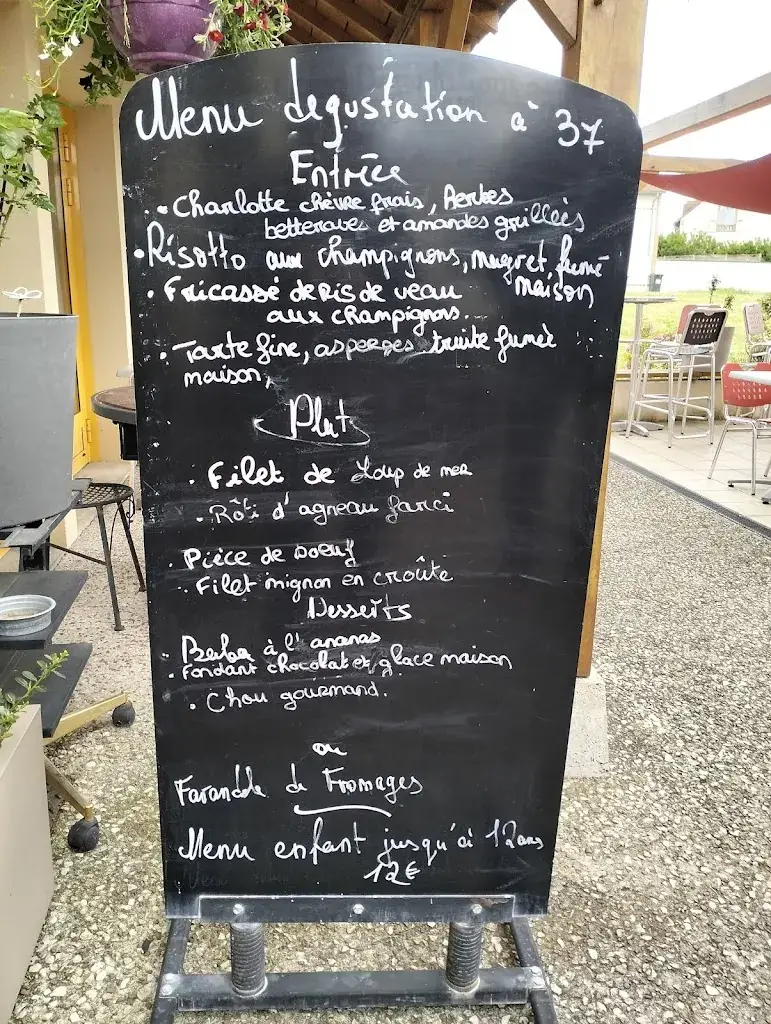 Menu dégustation à 37
Entrée
• Charlotte chèvre frais, Herbes
betteraves et amandes grillées
• Risotto aux champignons, magret fumé
maison
• Fricassé de Ris de veau
aux champignons.
• Tarte fine, asperges truite fumée
maison,
Plat
• Filet de Loup de mer
• Rôti d'agneau farci
• Pièce de boeuf
• Filet mignon en croûte
Desserts
• Baba à l'ananas
• Fondant chocolat et glace maison
• Chou gourmand.
ou
Farandole de Fromages
Menu enfant jusqu'à 12 ans
12€